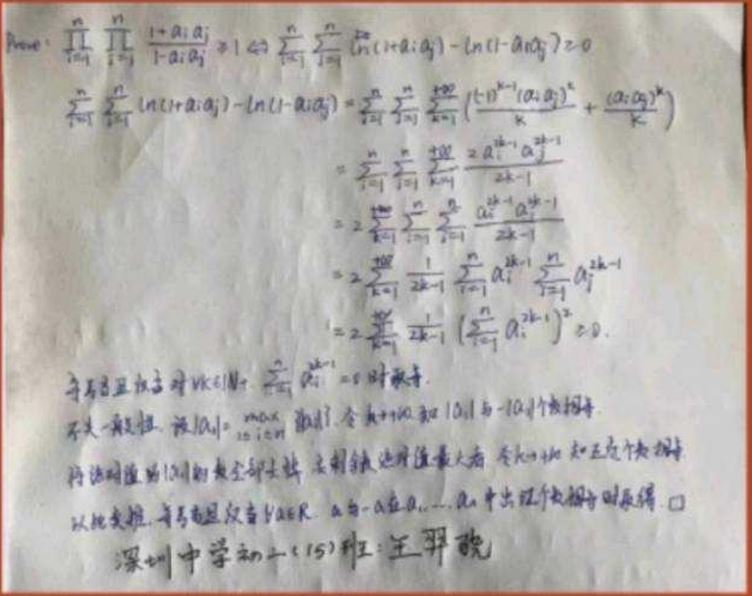 Prove: $\prod_{i=1}^{n} \prod_{j=1}^{n} \frac{1+a_i a_j}{1-a_i a_j} \geq 1 \Leftrightarrow \sum_{i=1}^{n} \sum_{j=1}^{n} \ln(1+a_i a_j) - \ln(1-a_i a_j) \geq 0$
$\sum_{i=1}^{n} \sum_{j=1}^{n} \ln(1+a_i a_j) - \ln(1-a_i a_j) = \sum_{i=1}^{n} \sum_{j=1}^{n} \sum_{k=1}^{+\infty} \left( \frac{(-1)^{k-1} (a_i a_j)^k}{k} + \frac{(a_i a_j)^k}{k} \right)$
$= \sum_{i=1}^{n} \sum_{j=1}^{n} \sum_{k=1}^{+\infty} \frac{2 a_i^{2k-1} a_j^{2k-1}}{2k-1}$
$= 2 \sum_{k=1}^{+\infty} \sum_{i=1}^{n} \sum_{j=1}^{n} \frac{a_i^{2k-1} a_j^{2k-1}}{2k-1}$
$= 2 \sum_{k=1}^{+\infty} \frac{1}{2k-1} \sum_{i=1}^{n} a_i^{2k-1} \sum_{j=1}^{n} a_j^{2k-1}$
$= 2 \sum_{k=1}^{+\infty} \frac{1}{2k-1} \left( \sum_{i=1}^{n} a_i^{2k-1} \right)^2 \geq 0.$
等号当且仅当对 $\forall k \in \mathbb{N}_+$, $\sum_{i=1}^{n} a_i^{2k-1} = 0$ 时取等.
不失一般性, 设 $|a_1| = \max_{1 \leq i \leq n} \{|a_i|\}$, 令 $k \to +\infty$ 知 $|a_1|$ 与 $-|a_1|$ 个数相等.
将绝对值为 $|a_1|$ 的数全部去掉, 去剩余绝对值最大者 令 $k \to +\infty$ 知正负个数相等
以此类推, 等号当且仅当 $\forall a \in \mathbb{R}$, $a$ 与 $-a$ 在 $a_1, \ldots, a_n$ 中出现个数相等时取得. □
深圳中学初二(15)班: 王羿骁